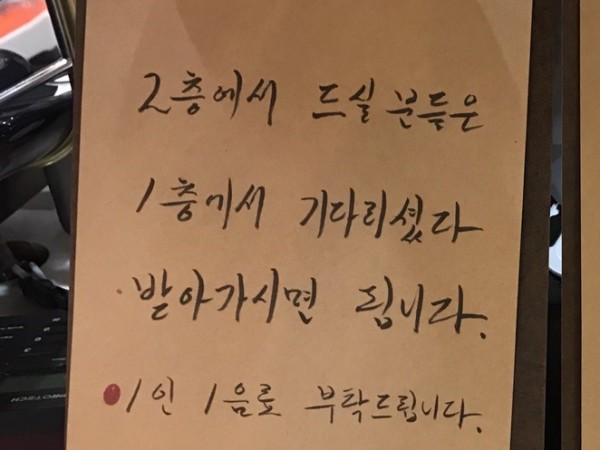 2층에서 드실 분들은
1층에서 기다리셨다
받아가시면 됩니다.
1인 1음료 부탁드립니다.